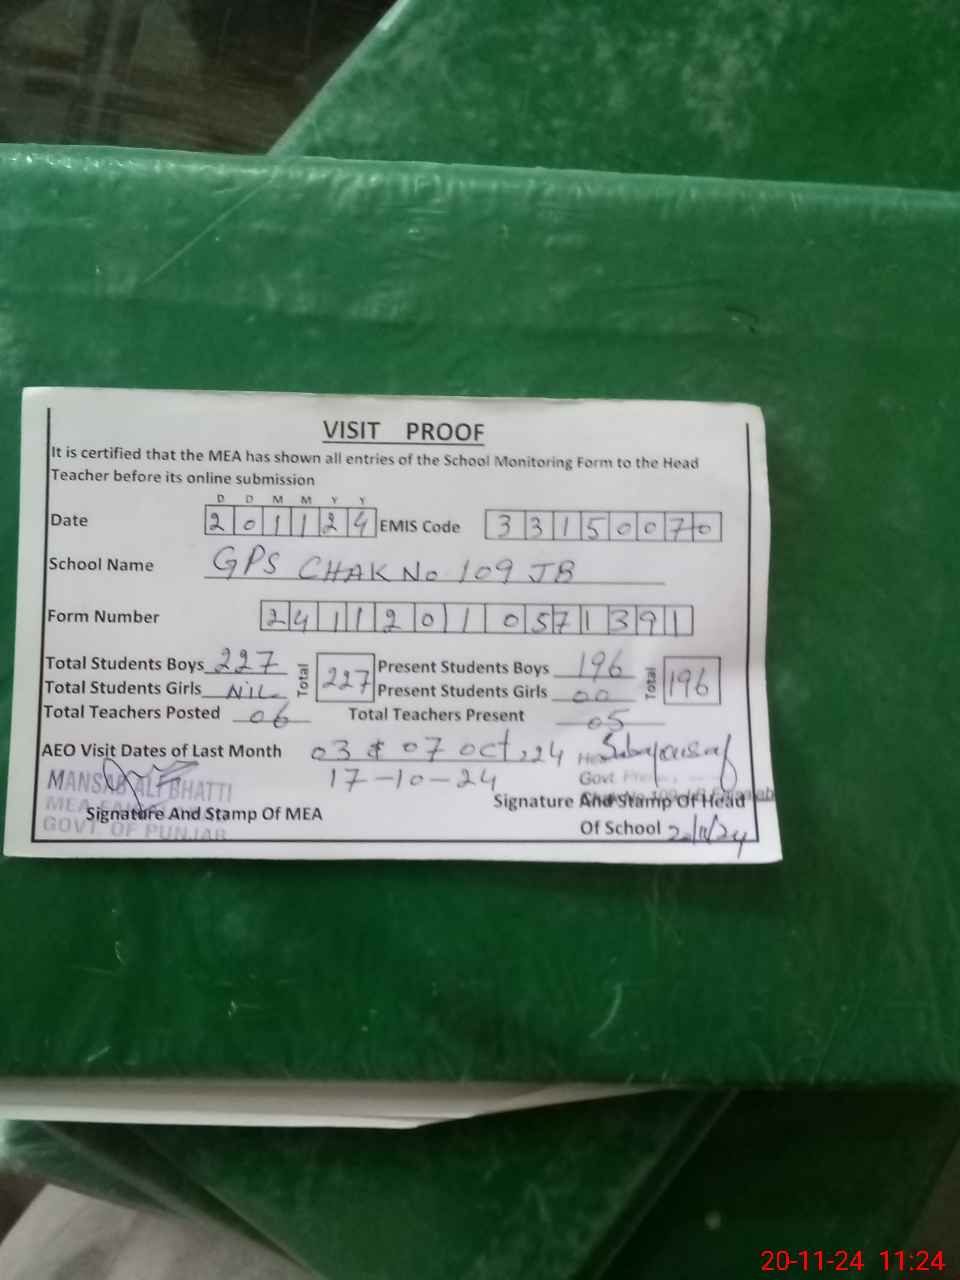 VISIT PROOF
It is certified that the MEA has shown all entries of the School Monitoring Form to the Head
Teacher before its online submission
D D M M Y Y
Date 201124 EMIS Code 33150070
School Name GPS CHAK No 109 JB
Form Number 24112010571391
Total Students Boys 227 Total 227 Present Students Boys 196 Total 196
Total Students Girls NIL Present Students Girls 00
Total Teachers Posted 06 Total Teachers Present 05
AEO Visit Dates of Last Month 03 & 07 oct, 24
17-10-24
MANSAB ALI BHATTI
MEA
GOVT. OF PUNJAB
Signature And Stamp Of MEA
Govt
Signature And Stamp Of Head
Of School 20/11/24
20-11-24 11:24